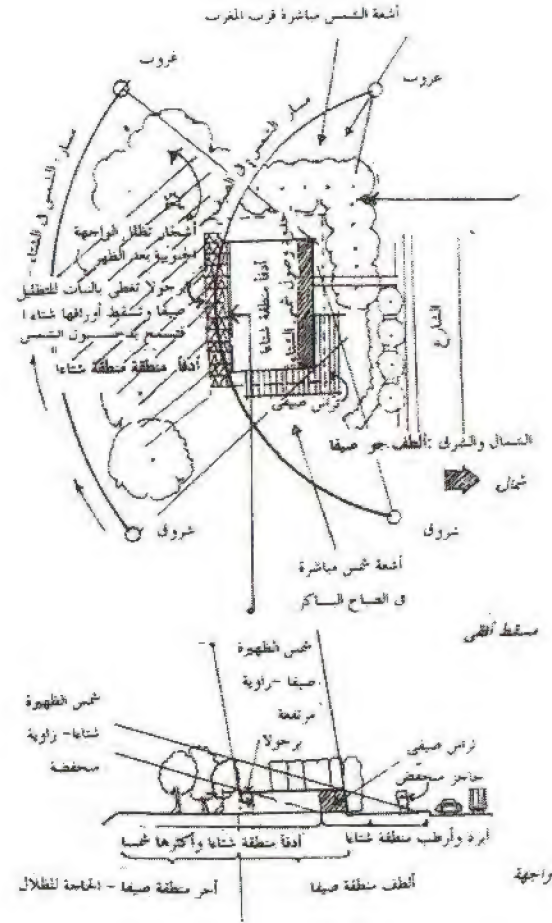 أشعة الشمس مباشرة قرب المغرب
غروب
غروب
مسار الشمس في الشتاء
مسار الشمس في الصيف
أشجار تظلل الواجهة
الجنوبية بعد الظهر
برجولا تغطى بالنبات للتظليل
صيفا وتسقط أوراقها شتاءا
فتسمح بدخول الشمس
أدفأ منطقة منطقة شتاءا
أدفأ منطقة شتاءا
حدود وصول شمس الشتاء
تراس صيفى
الشارع
الشمال والشرق : ألطف جو صيفا
شمال
شروق
شروق
أشعة شمس مباشرة
فى الصباح الباكر
مسقط أفقى
شمس الظهيرة
صيفا - زاوية
مرتفعة
شمس الظهيرة
شتاءا - زاوية
منخفضة
برجولا
تراس صيفى
حاجز منخفض
أدفأ منطقة شتاءا وأكثرها شمسا
أبرد وأرطب منطقة شتاءا
واجهة
أحر منطقة صيفا - الحاجة للظلال
ألطف منطقة صيفا